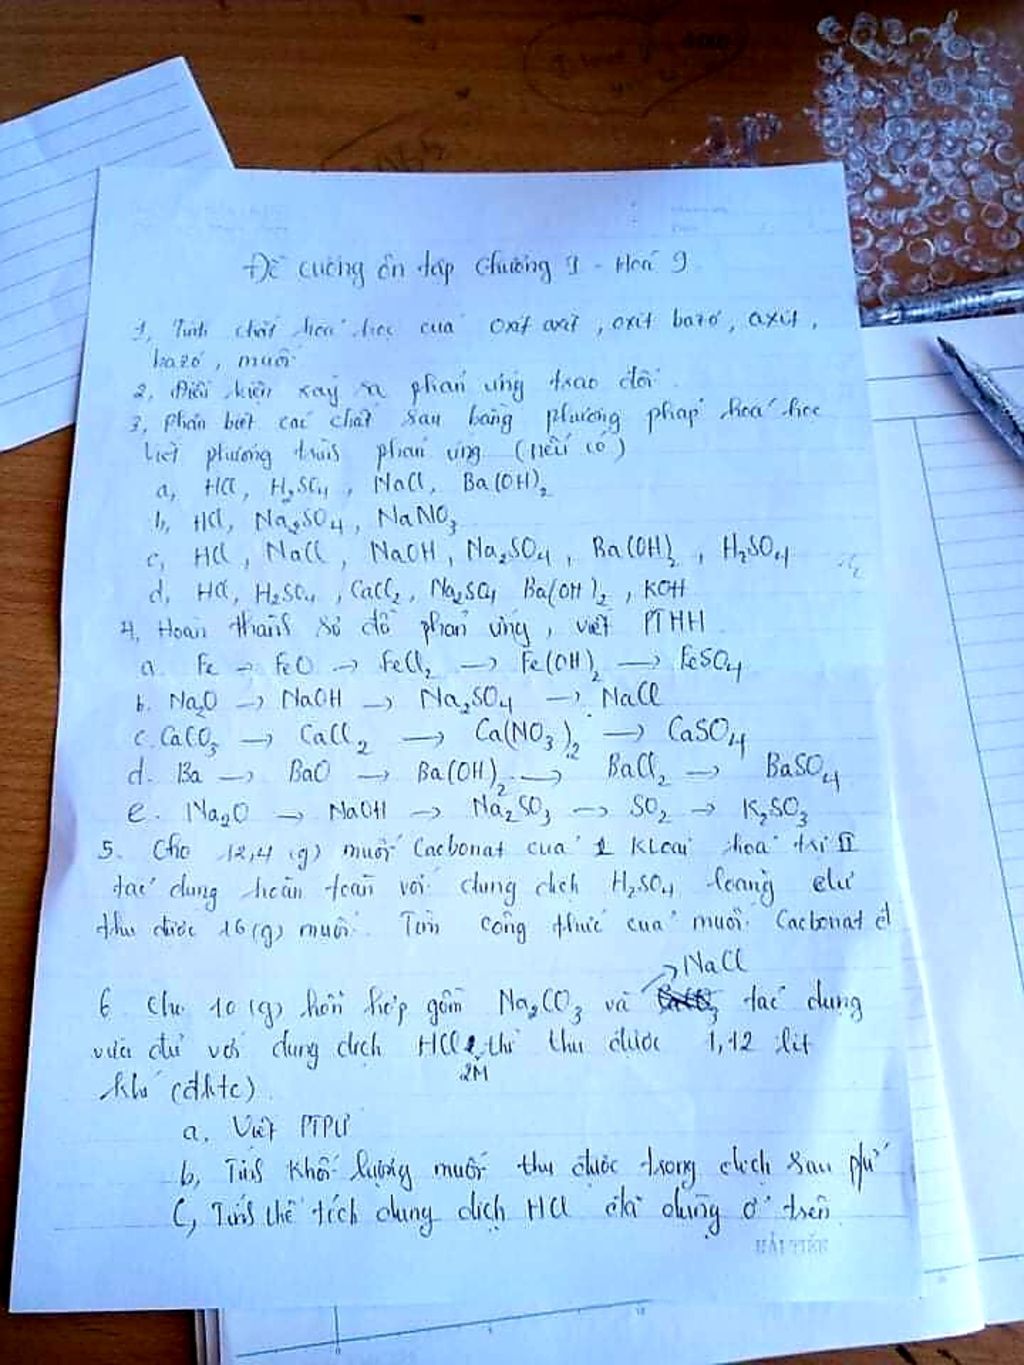 Đề cương ôn tập Chương 1 - Hoá 9
1, Tính chất hoá học của oxit axit, oxit bazơ, axit,
bazơ, muối
2, Điều kiện xảy ra phản ứng trao đổi.
3, Phân biệt các chất sau bằng phương pháp hoá học
Viết phương trình phản ứng (nếu có)
a, HCl, H₂SO₄, NaCl, Ba(OH)₂
b, HCl, Na₂SO₄, NaNO₃
c, HCl, NaCl, NaOH, Na₂SO₄, Ba(OH)₂, H₂SO₄
d, HCl, H₂SO₄, CaCl₂, Na₂SO₄ Ba(OH)₂, KOH
4, Hoàn thành sơ đồ phản ứng, viết PTHH
a. Fe → FeO → FeCl₂ → Fe(OH)₂ → FeSO₄
b. Na₂O → NaOH → Na₂SO₄ → NaCl
c. CaCO₃ → CaCl₂ → Ca(NO₃)₂ → CaSO₄
d. Ba → BaO → Ba(OH)₂ → BaCl₂ → BaSO₄
e. Na₂O → NaOH → Na₂SO₃ → SO₂ → K₂SO₃
5. Cho 12,4 (g) muối Cacbonat của 1 Kloại hoá trị II
tác dụng hoàn toàn với dung dịch H₂SO₄ loãng dư
thu được 16 (g) muối. Tìm công thức của muối Cacbonat
NaCl
6 Cho 10 (g) hỗn hợp gồm Na₂CO₃ và tác dụng
vừa đủ với dung dịch HCl thì thu được 1,12 lít
2M
khí (đktc)
a, Viết PTPƯ
b, Tính khối lượng muối thu được trong dịch sau pứ
C, Tính thể tích dung dịch HCl đã dùng ở trên
HẢI TIẾN